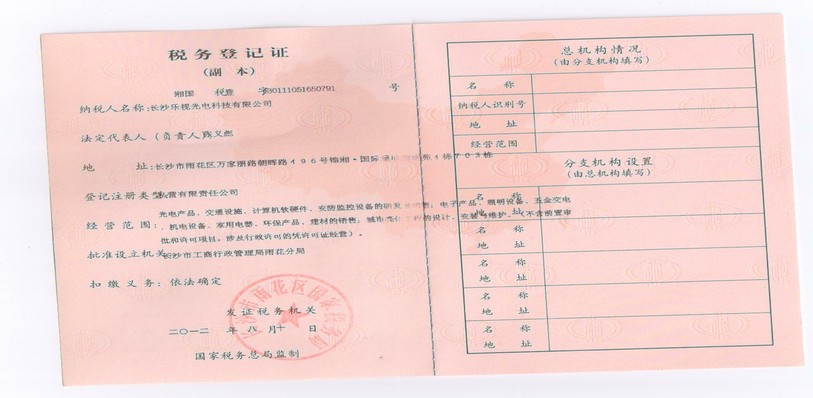 税务登记证
(副 本)
湘国 税登 字 30111051650791 号
纳税人名称:长沙乐视光电科技有限公司
法定代表人
(负责人)
地 址:长沙市雨花区万家丽路朝晖路496号锦湘·国际 4栋703栋
登记注册类型 私营有限责任公司
光电产品、交通设施、计算机软硬件、安防监控设备的研发及销售;电子产品、照明设备、五金交电
经营范围:、机电设备、家用电器、环保产品、建材的销售;城市亮化工程的设计、安装与维护。(不含前置审
批和许可项目,涉及行政许可的凭许可证经营)。
批准设立机关:长沙市工商行政管理局雨花分局
扣缴义务:依法确定
发证税务机关
二〇一二 年 八 月 十 日
国家税务总局监制
长沙市雨花区国家税务局
总机构情况
(由分支机构填写)
名 称
纳税人识别号
地 址
经营范围
分支机构设置
(由总机构填写)
名 称
地 址
名 称
地 址
名 称
地 址
名 称
地 址
名 称
地 址